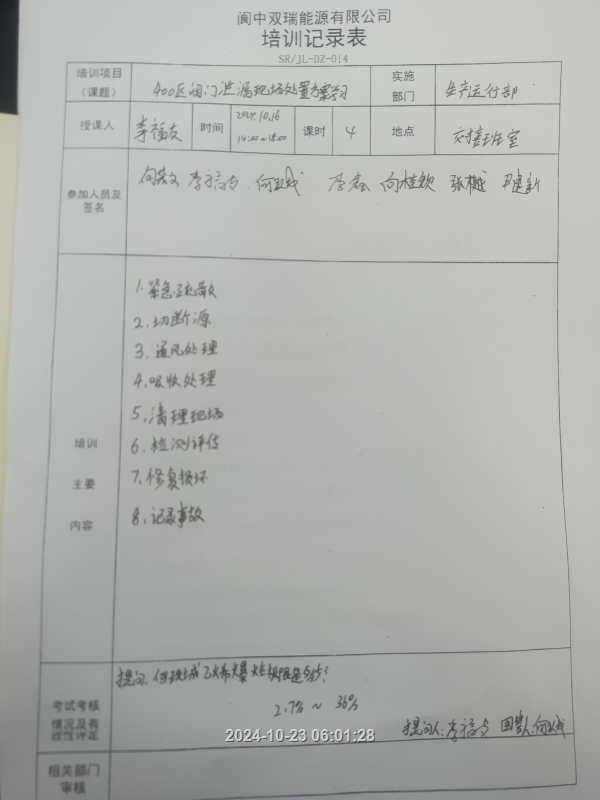 阆中双瑞能源有限公司
培训记录表
SR/JL-DZ-014
培训项目（课题） 400区阀门泄漏现场处置方案学习 实施部门 生产运行部
授课人 李福友 时间 2024.10.16 14:00~18:00 课时 4 地点 交接班室
参加人员及签名 李福友 向桂钦 尹建新
培训主要内容
1.紧急疏散
2.切断源
3.通风处理
4.吸收处理
5.清理现场
6.检测评估
7.修复损坏
8.记录事故
考试考核情况及有效性评定
提问: 乙烯爆炸极限是多少?
2.7% ~ 36%
提问人: 李福友 回答人:
2024-10-23 06:01:28
相关部门审核